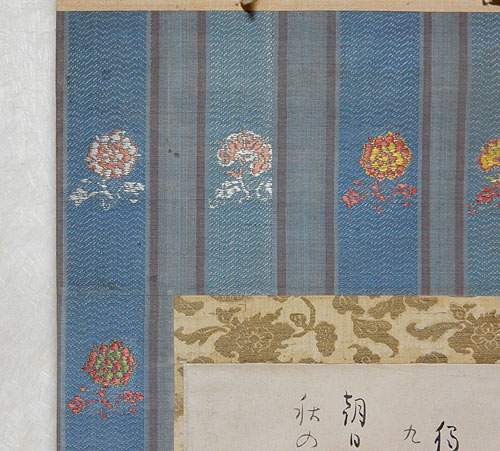 九
朝日
秋の